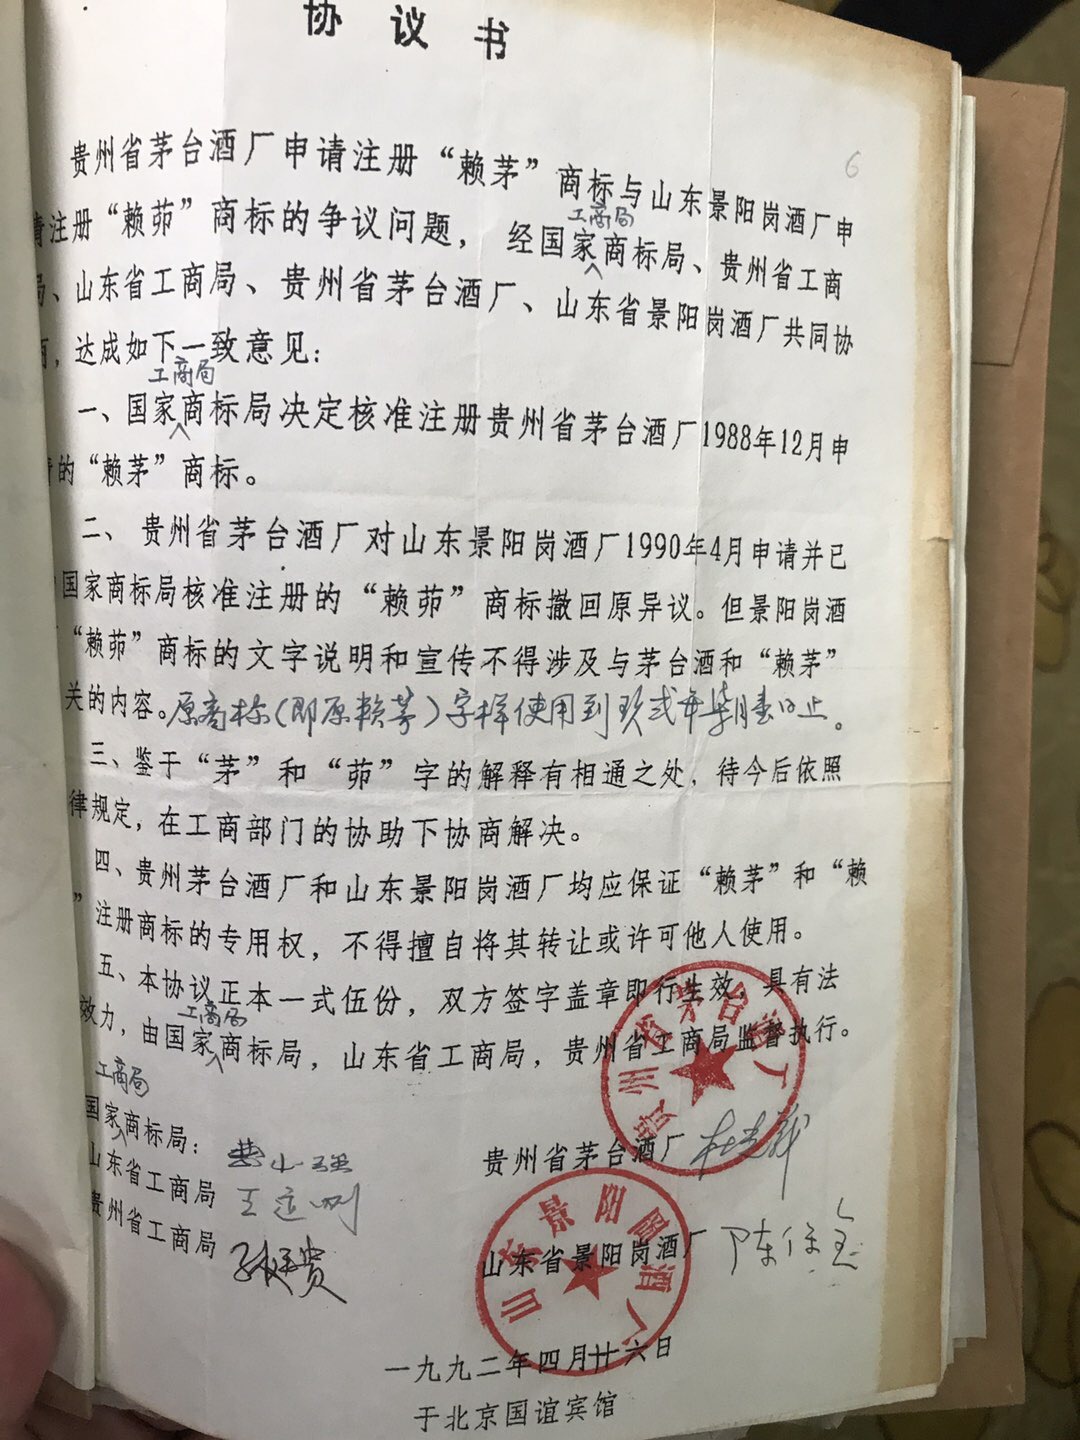 协议书
6
贵州省茅台酒厂申请注册“赖茅”商标与山东景阳岗酒厂申
请注册“赖茆”商标的争议问题，经国家工商局商标局、贵州省工商
局、山东省工商局、贵州省茅台酒厂、山东省景阳岗酒厂共同协
，达成如下一致意见：
一、国家工商局商标局决定核准注册贵州省茅台酒厂1988年12月申
请的“赖茅”商标。
二、贵州省茅台酒厂对山东景阳岗酒厂1990年4月申请并已
国家商标局核准注册的“赖茆”商标撤回原异议。但景阳岗酒
“赖茆”商标的文字说明和宣传不得涉及与茅台酒和“赖茅”
关的内容。原商标（即原赖茅）字样使用到玖贰年 月 日止。
三、鉴于“茅”和“茆”字的解释有相通之处，待今后依照
律规定，在工商部门的协助下协商解决。
四、贵州茅台酒厂和山东景阳岗酒厂均应保证“赖茅”和“赖
”注册商标的专用权，不得擅自将其转让或许可他人使用。
五、本协议正本一式伍份，双方签字盖章即行生效，具有法
效力，由国家工商局商标局，山东省工商局，贵州省工商局监督执行。
国家工商局商标局：
山东省工商局
贵州省工商局
贵州省茅台酒厂
山东省景阳岗酒厂
贵州省茅台酒厂
山东景阳岡酒厂
一九九二年四月廿六日
于北京国谊宾馆